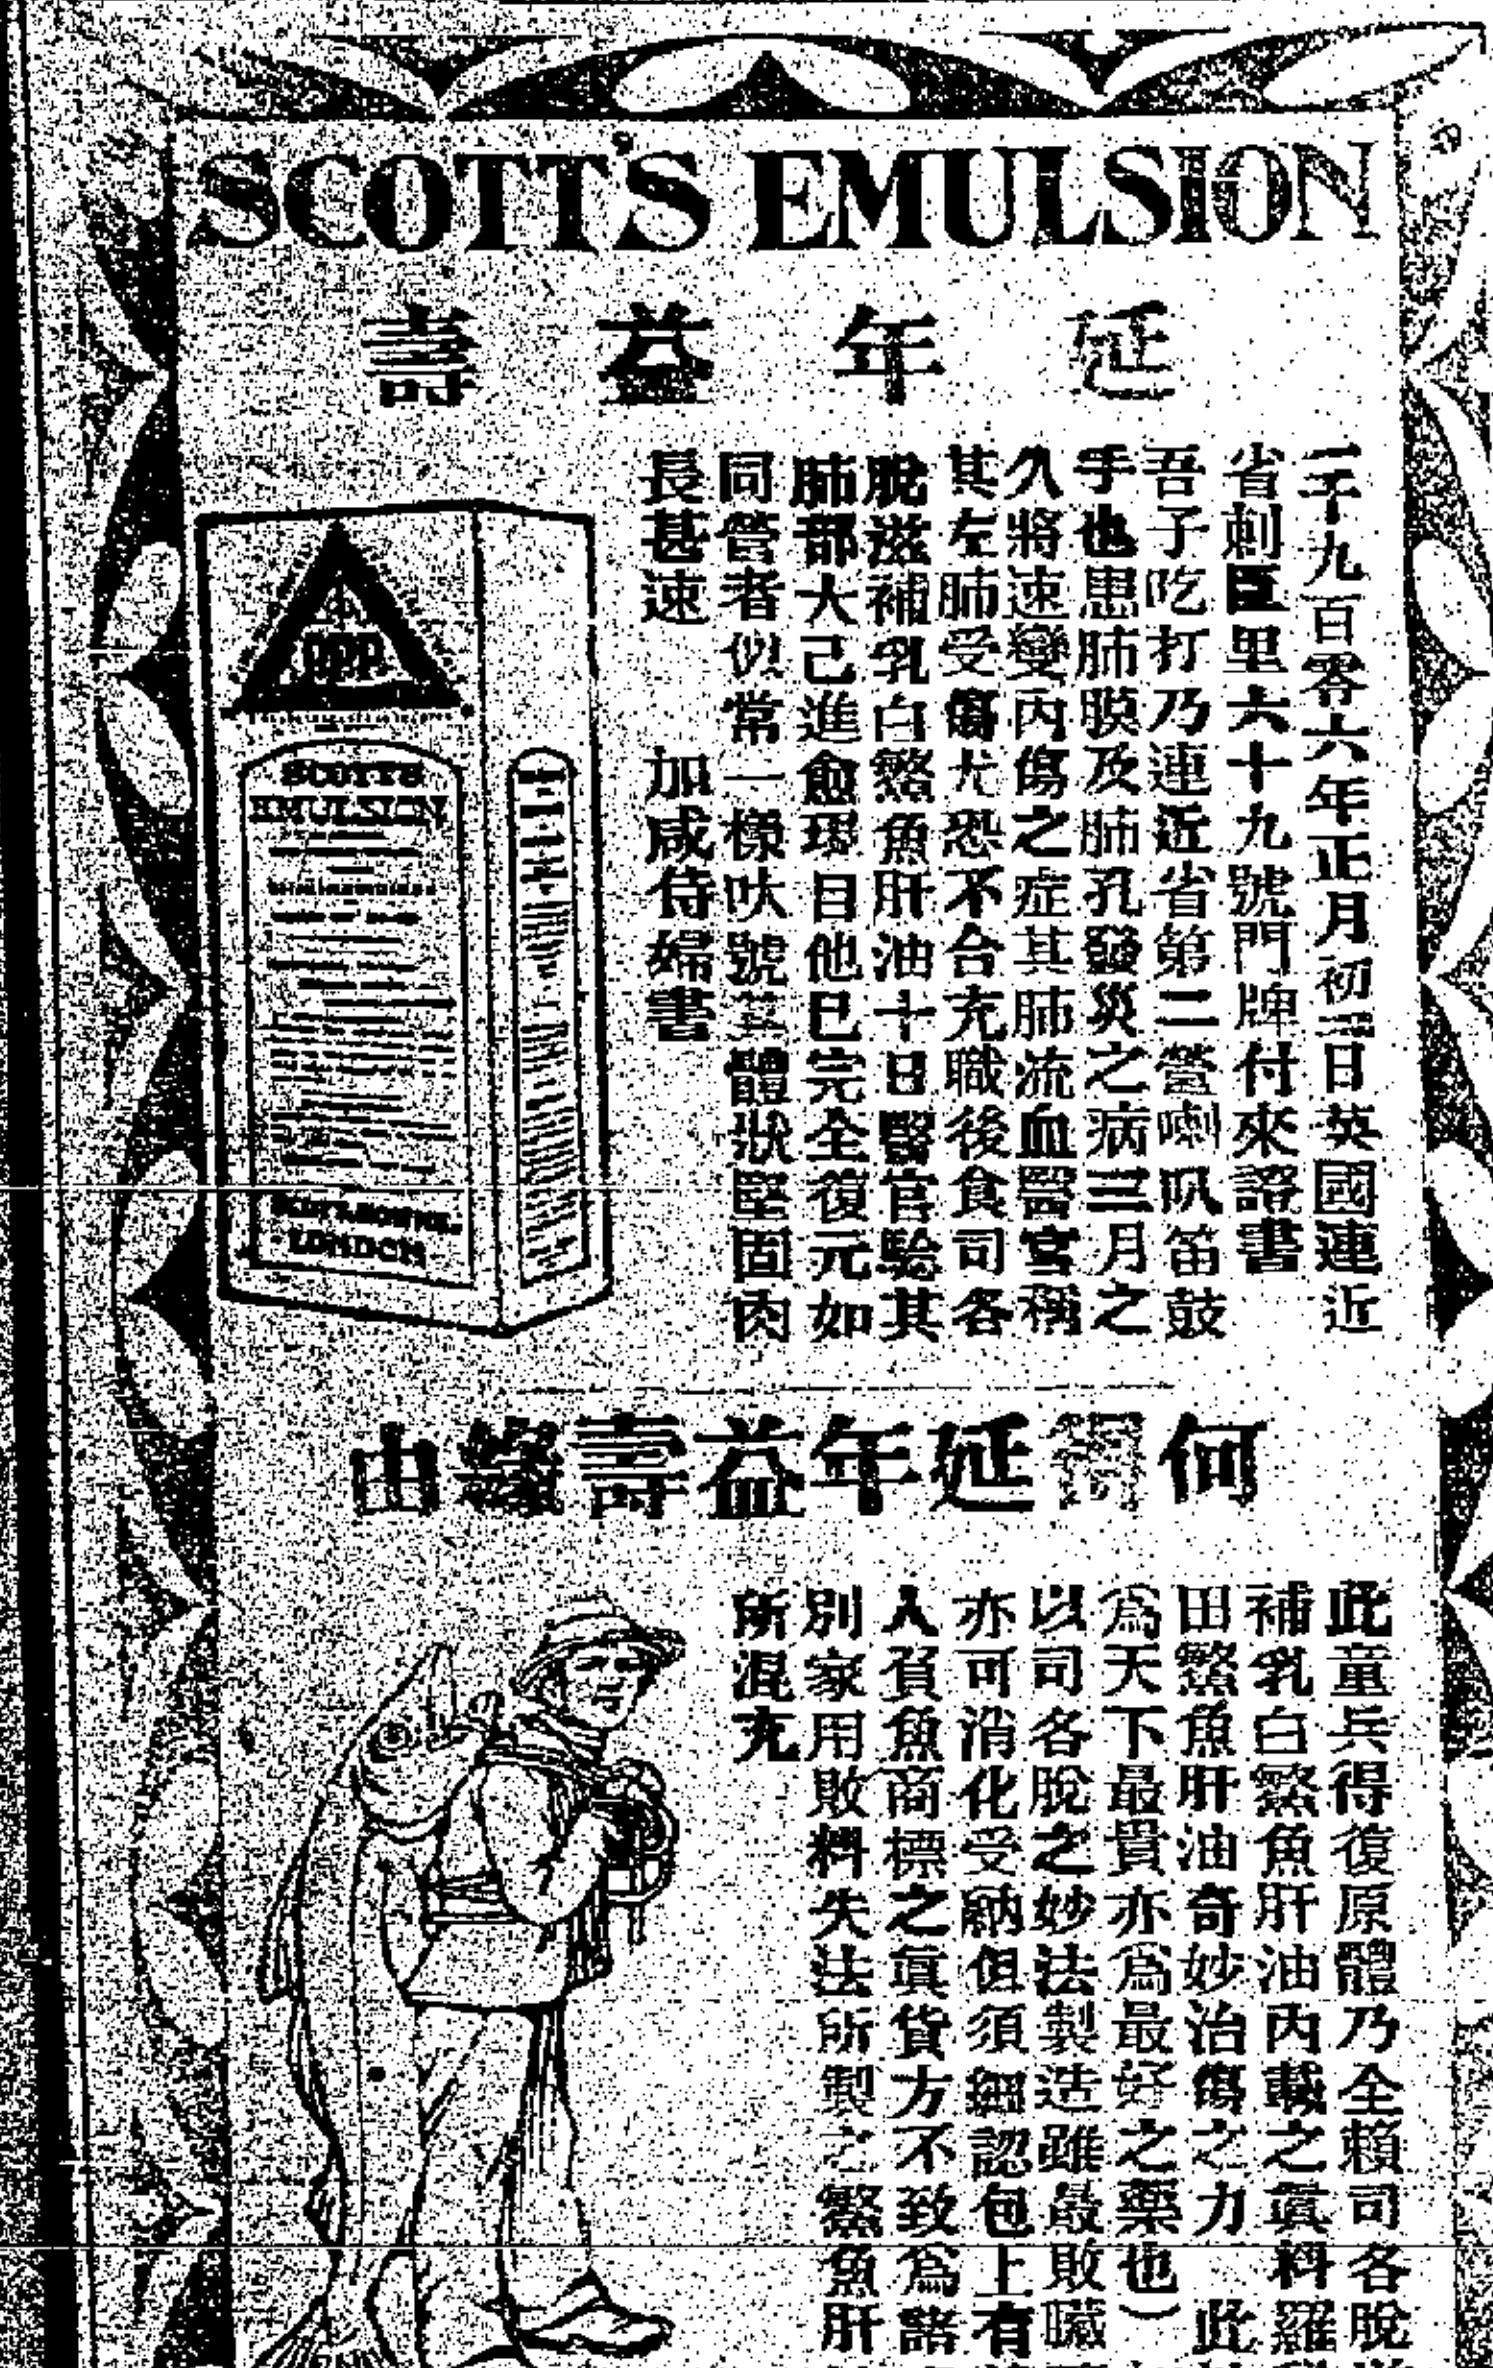 SCOTT'S EMULSION
延年益壽
一千九百零六年正月初三日英國連近
省刺區里六十九號門牌付來證書
吾子吃打乃連近省第二營喇叭笛鼓
手也患肺膜及肺孔發災之病三月之
久將速變內傷之症其肺流血醫官稱
其左肺受傷尤恐不合充職後食司各
脫滋補乳白鰵魚肝油十日醫官驗其
肺部大己進愈現目他已完全復元如
同管者似常一樣吹號其體狀堅固肉
長甚速　加咸侍婦書
SCOTT'S
EMULSION
LONDON
何謂延年益壽緣由
此童兵得復原體乃全賴司各脫
補乳白鰵魚肝油內載之眞料羅
田鰵魚肝油奇妙治傷之力　此
爲天下最貴亦爲最好之藥也）
以司各脫之妙法製造雖最敗臟
亦可消化受納但須細認包上有
人負魚商標之眞貨方不致爲諸
別家用敗料失法所製之鰵魚肝
所混充